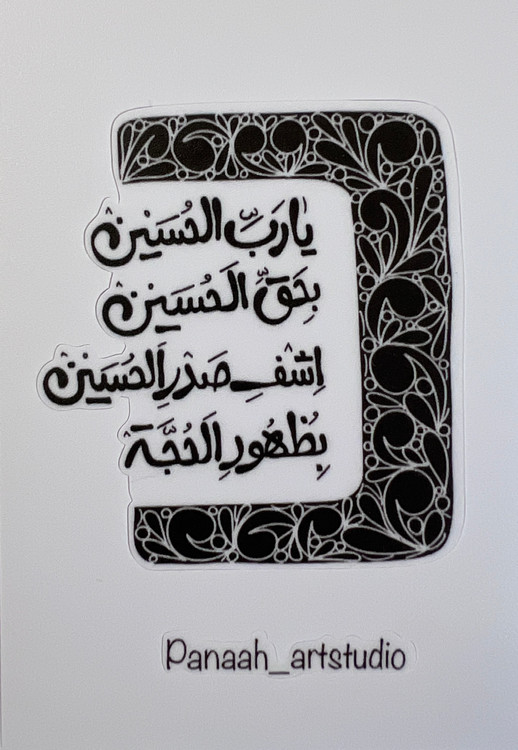 يَارَبِّ الحُسَيْنْ
بِحَقِّ الْحُسَيْنْ
اِشْفِ صَدْرِ الْحُسَيْنْ
بِظُهُورِ الْحُجَّة
Panaah_artstudio